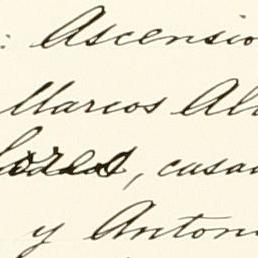 : Ascensio
Marcos Al
, casa
y Anton